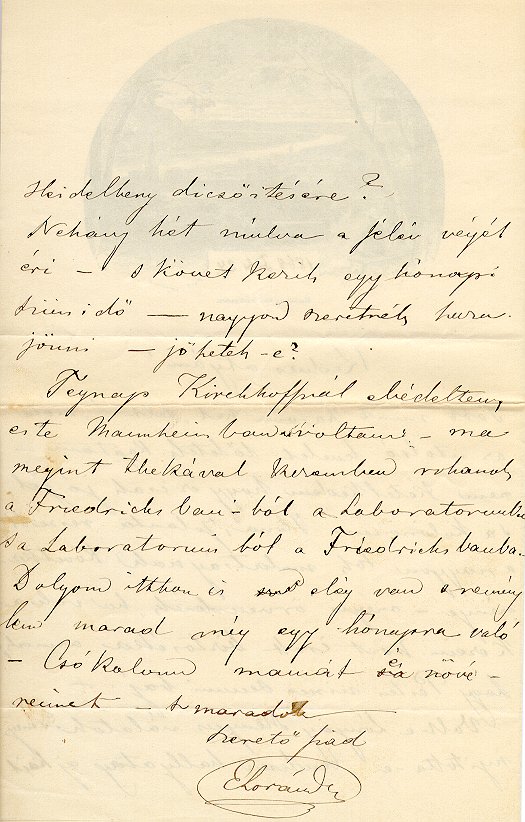 Heidelberg dicsőitésére?
Nehány hét mulva a félév végét
éri — s következik egy hónapi
szünidő — nagyon szeretnék haza
jönni — jöhetek-e?
Tegnap Kirchhoffnál ebédeltem,
este Mannheimban voltam — ma
megint thekával kezemben rohanok
a Friedrichsbau-ból a Laboratoriumba
s a Laboratoriumból a Friedrichsbauba.
Dolgom itthon is elég van s remény
lem marad még egy hónapra való
— Csókolom mamát és növé-
reimet — s maradok
szerető fiad
Loránd